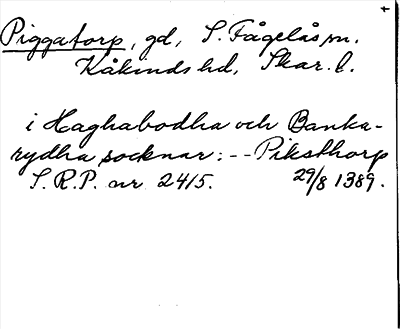 Piggatorp, gd, S. Fågelås sn.
Kåkinds hd, Skar. l.
i Haghabodha och Banka-
rydha socknar: -- Piksthorp
S.R.P. nr 2415. 29/8 1389.